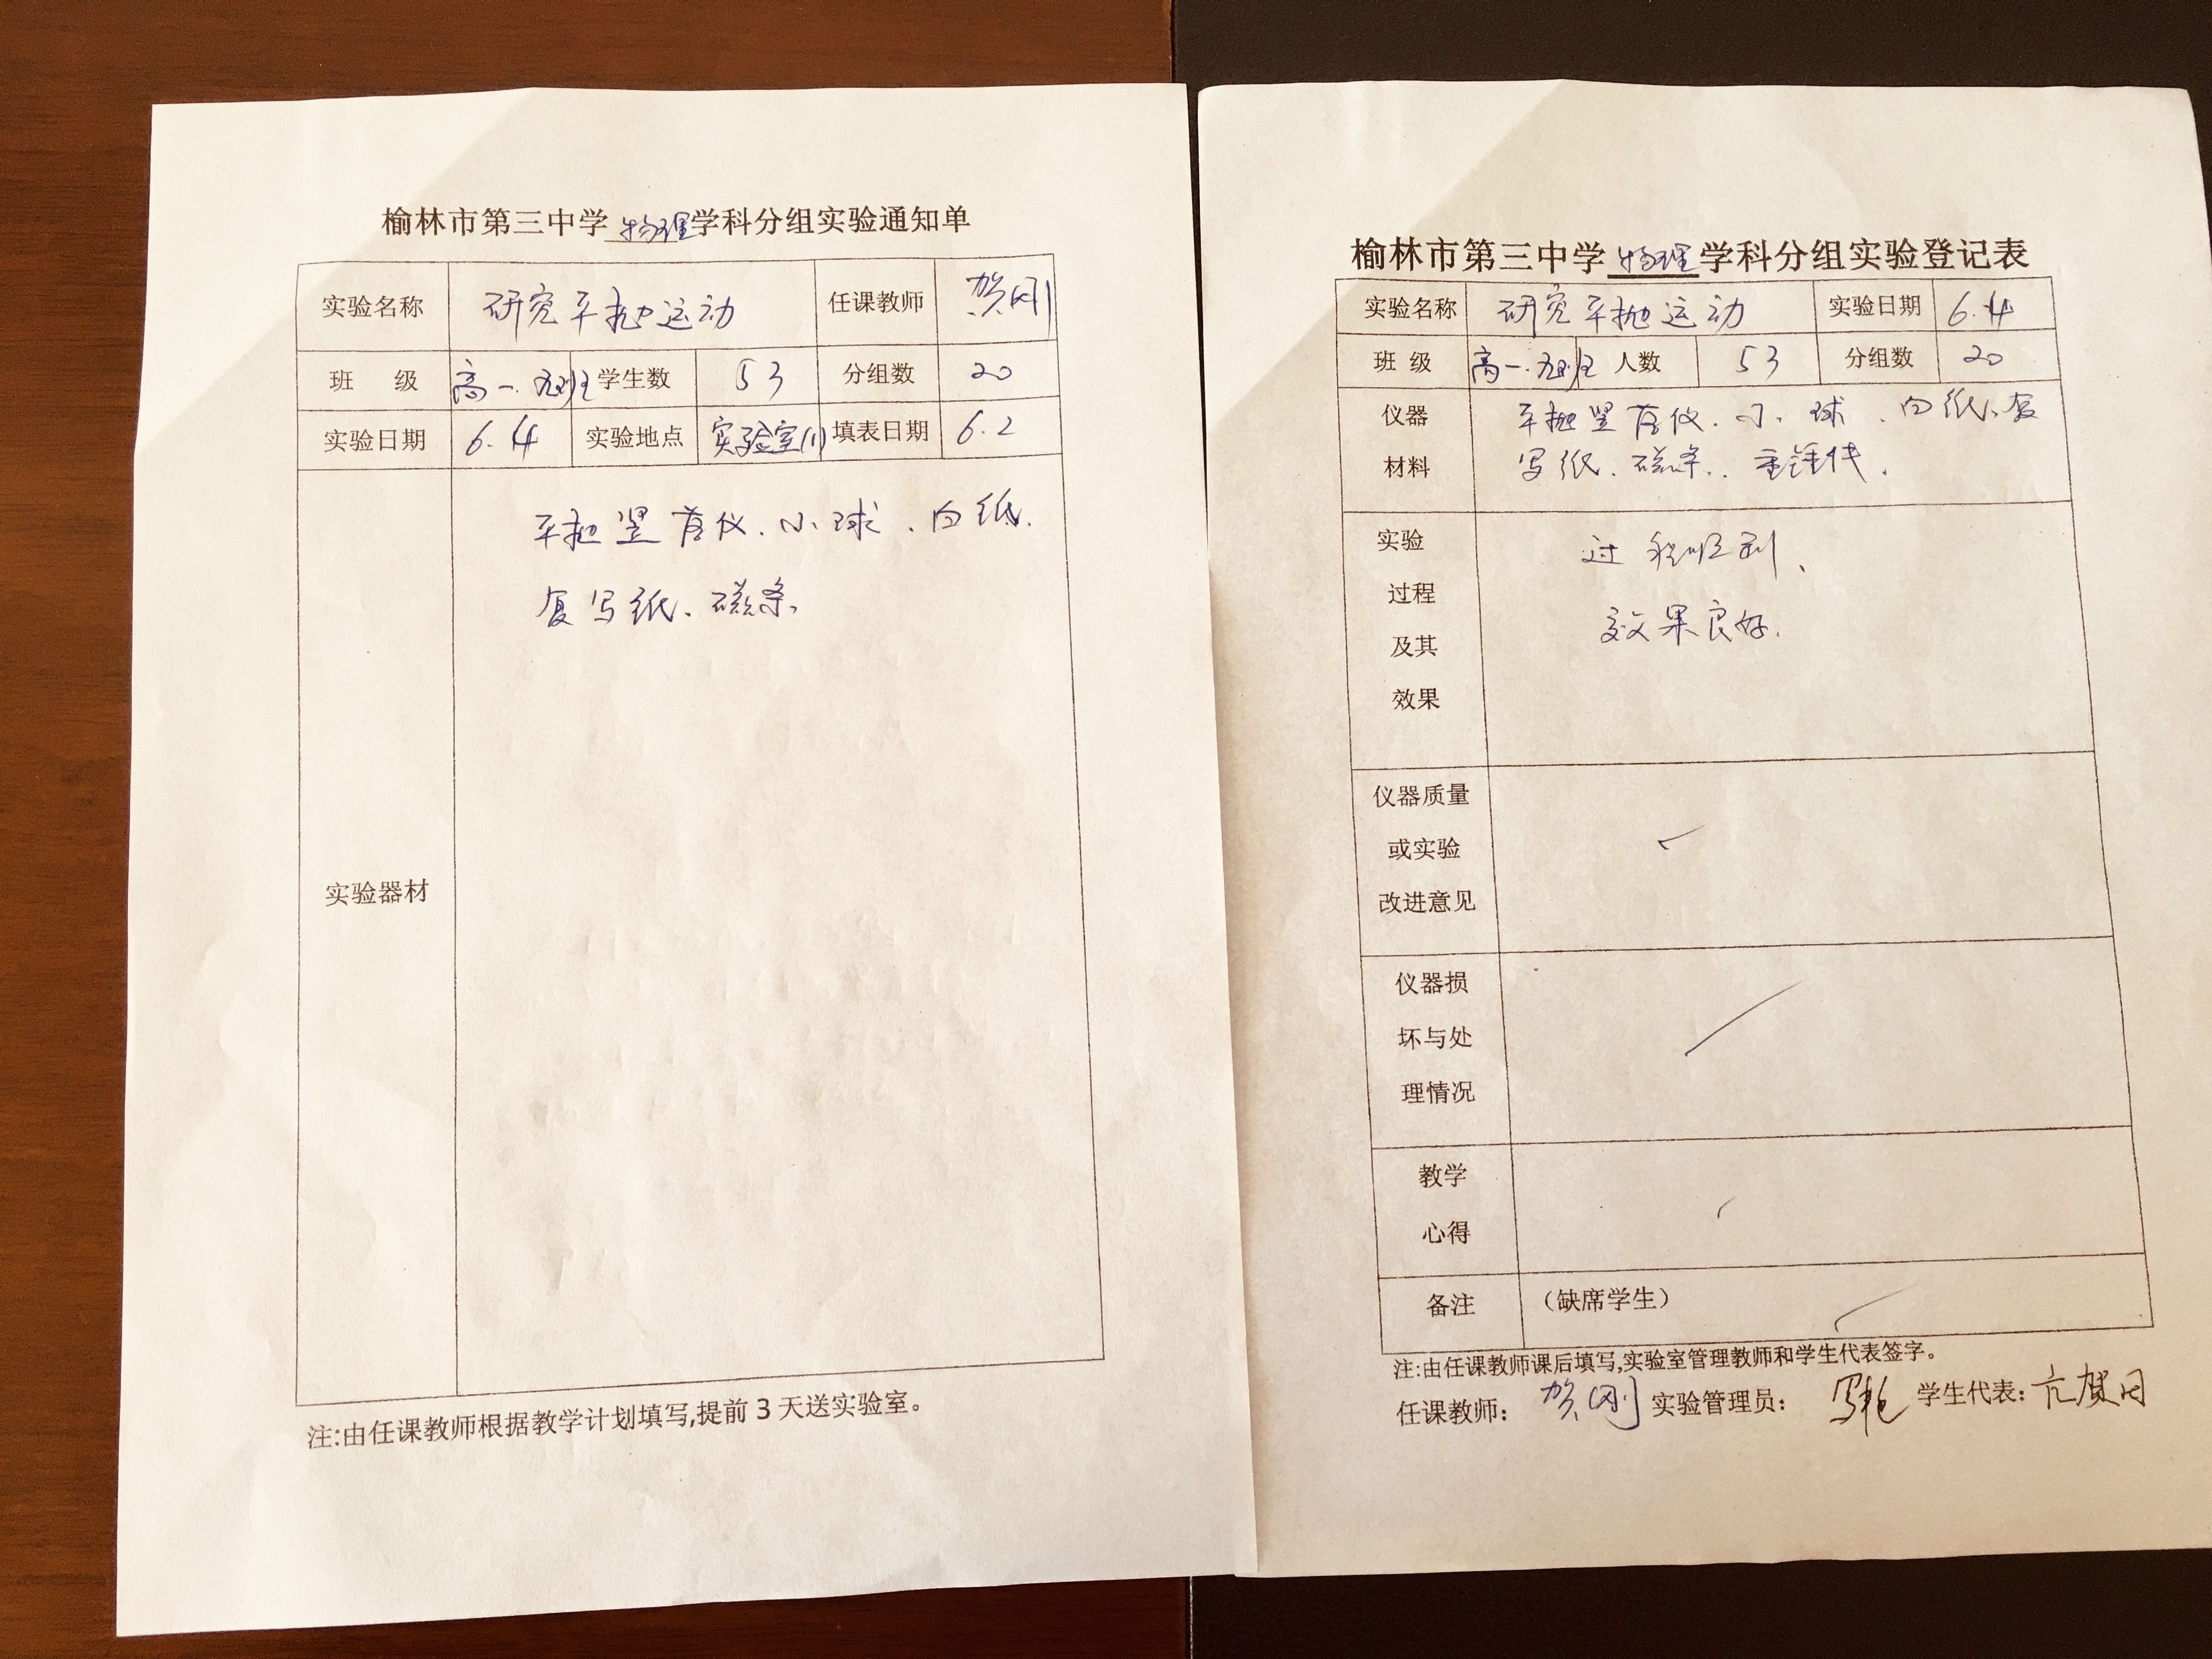 榆林市第三中学 物理 学科分组实验通知单
实验名称 研究平抛运动 任课教师 贺刚
班 级 高一.九班 学生数 53 分组数 20
实验日期 6.4 实验地点 实验室(1) 填表日期 6.2
平抛竖落仪、小球、白纸、
复写纸、磁条、
实验器材
注:由任课教师根据教学计划填写,提前3天送实验室。
榆林市第三中学 物理 学科分组实验登记表
实验名称 研究平抛运动 实验日期 6.4
班 级 高一.九班 人数 53 分组数 20
仪器 平抛竖落仪、小球、白纸、复
材料 写纸、磁条、重锤线、
实验 过程顺利、
过程
效果良好.
及其
效果
仪器质量
或实验
改进意见
仪器损
坏与处
理情况
教学
心得
备注 （缺席学生）
注:由任课教师课后填写,实验室管理教师和学生代表签字。
任课教师: 贺刚 实验管理员: 学生代表: